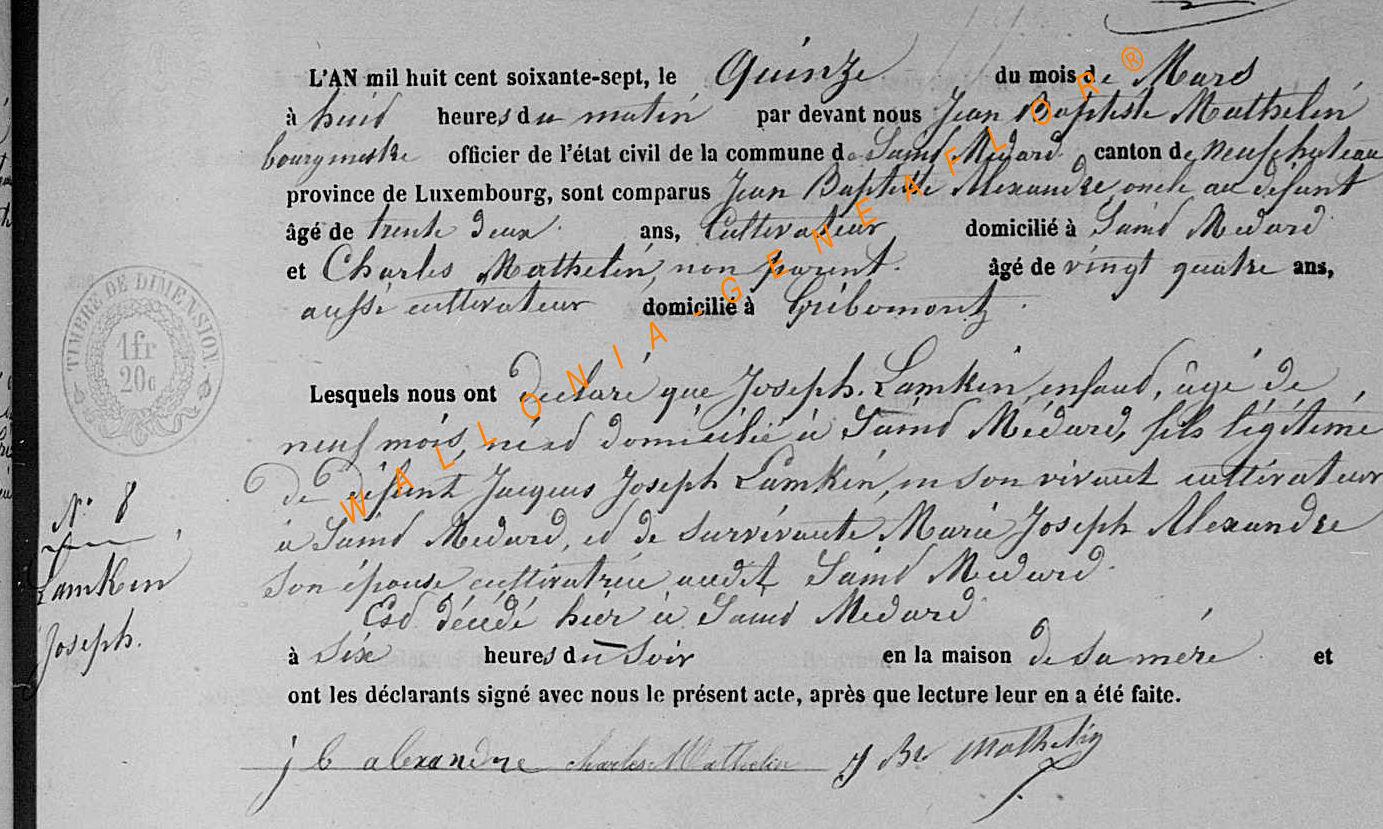 L'AN mil huit cent soixante-sept, le Quinze du mois de Mars
à huid heures du matin par devant nous Jean Baptiste Mathelin
bourgmestre officier de l'état civil de la commune de Saind Médard, canton de Neufchateau
province de Luxembourg, sont comparus Jean Baptiste Alexandre, oncle au défunt
âgé de trente deux ans, Cultivateur domicilié à Saind Medard
et Charles Mathelin, non parent. âgé de vingt quatre ans,
aussi cultivateur domicilié à Gribomont
Lesquels nous ont declaré que Joseph Lamkin, enfand, âgé de
neuf mois, né et domicilié à Saind Médard, fils légitime
de défunt Jacques Joseph Lamkin, en son vivant cultivateur
à Saind Medard, et de survivante Marie Joseph Alexandre
son épouse cultivatrice audit Saind Medard.
Esd décédé hier à Saind Medard
à six heures du soir en la maison de sa mére et
ont les déclarants signé avec nous le présent acte, après que lecture leur en a été faite.
j b alexandre charles Mathelin J Bte Mathelin
N° 8
Lamkin
Joseph.
TIMBRE DE DIMENSION.
1fr
20c
WALLONIA-GENEAFLOR®